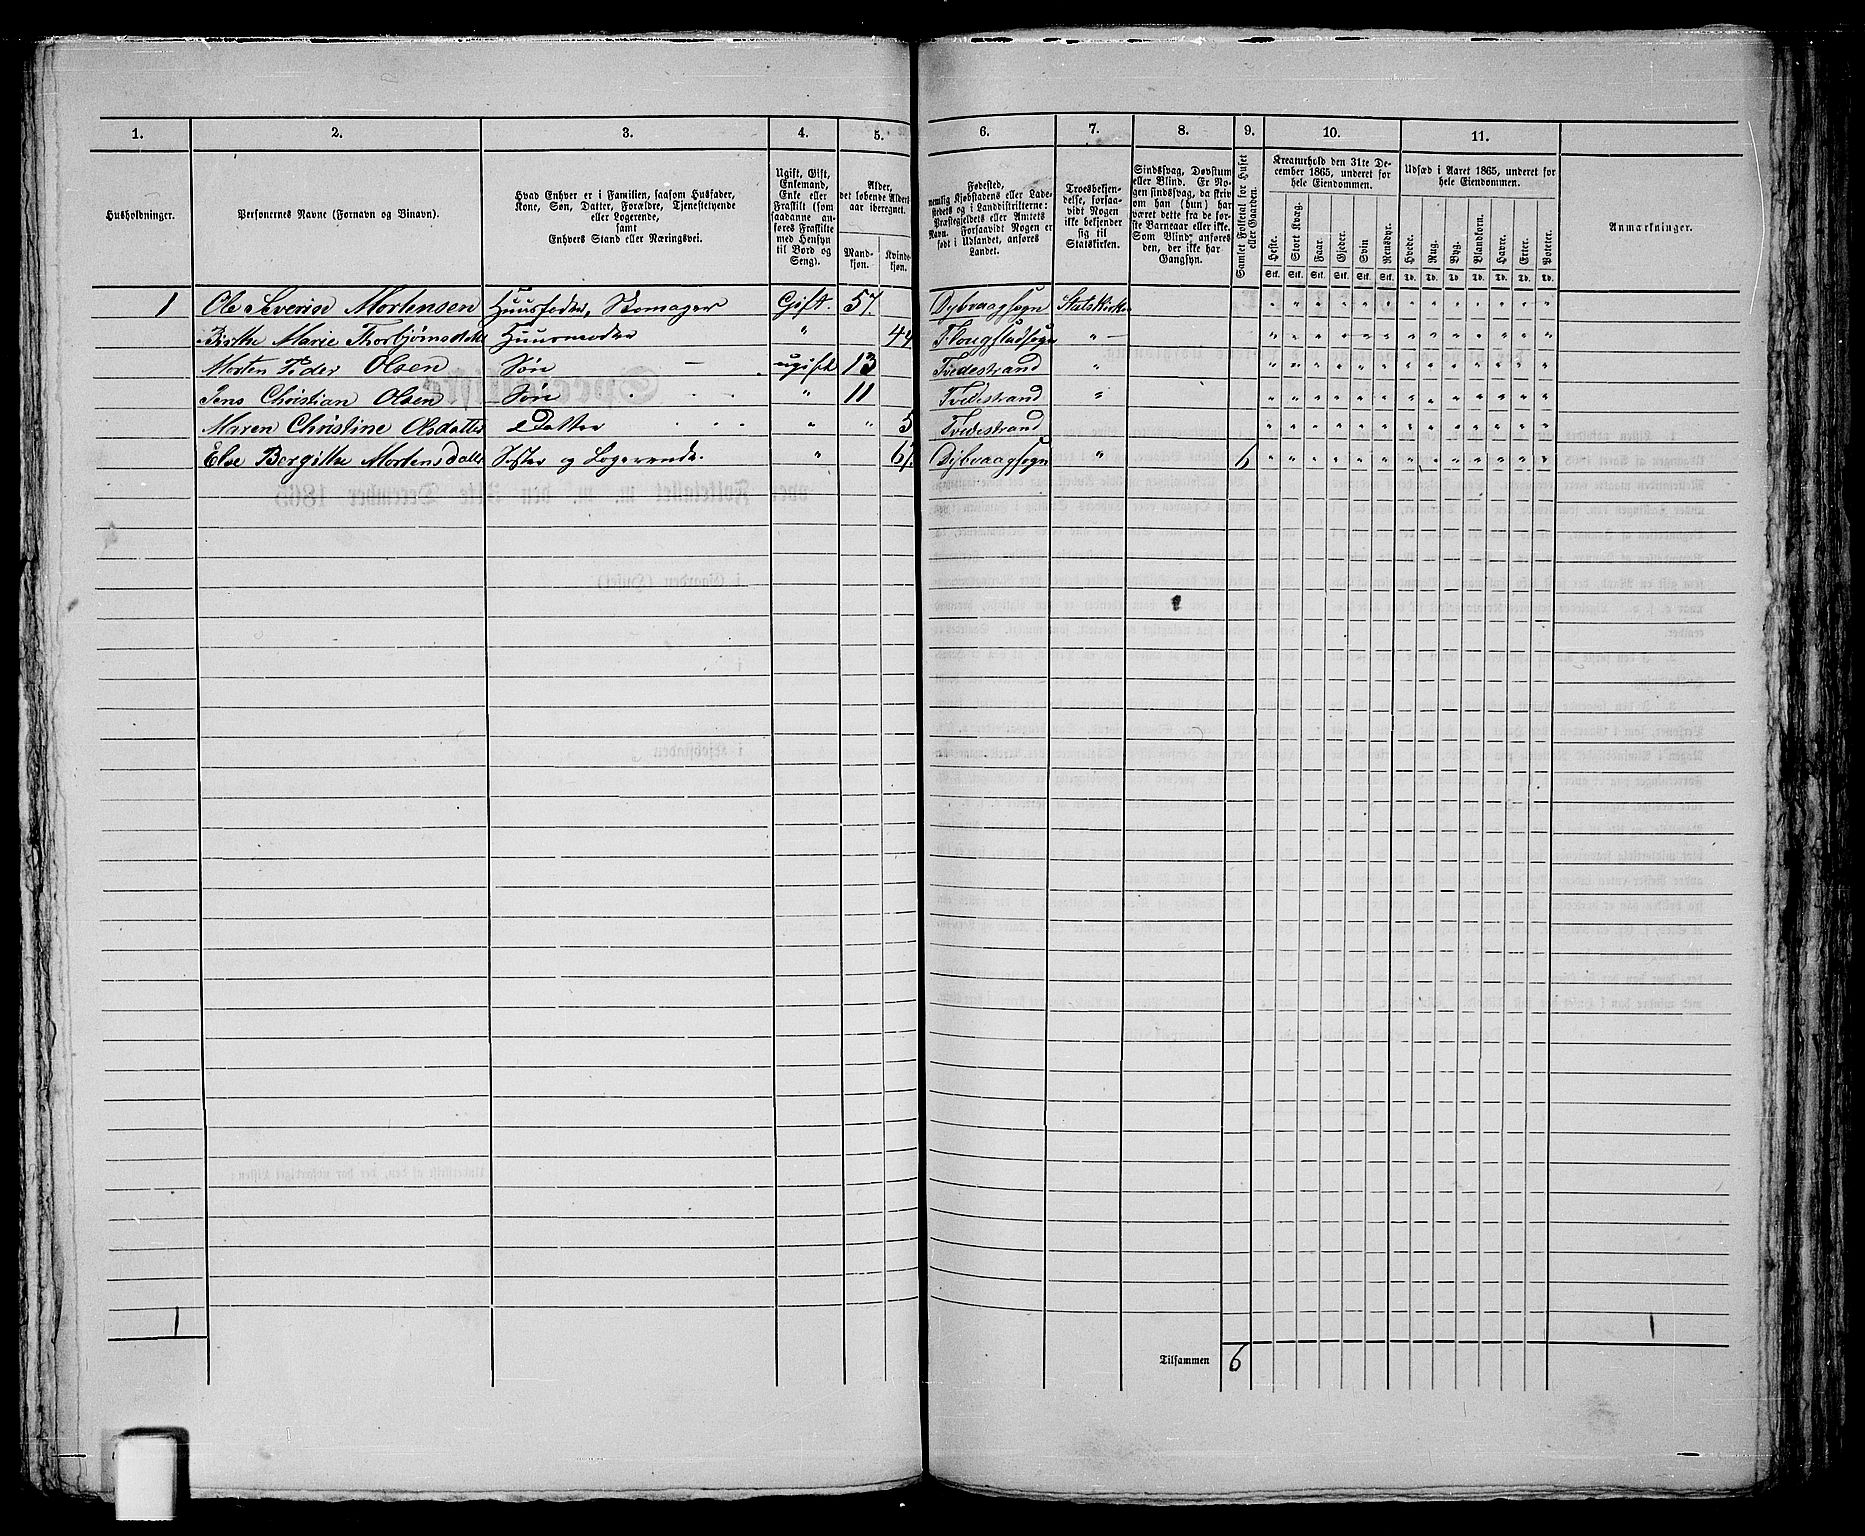 1. 2. 3. 4. 5. 6. 7. 8. 9. 10. 11.
Husholdninger.
Personernes Navne (Fornavn og Binavn).
Hvad Enhver er i Familien, saasom Husfader,
Kone, Søn, Datter, Forældre, Tjenestetyende
eller Logerende,
samt
Enhvers Stand eller Næringsvei.
Ugift, Gift,
Enkemand,
Enke eller
Fraskilt (som
saadanne an-
føres Fraskilte
med Hensyn
til Bord og
Seng).
Alder,
det løbende Alders-
aar iberegnet.
Mand-
kjøn.
Kvinde-
kjøn.
Fødested,
nemlig Kjøbstadens eller Lade-
stedets og i Landdistrikterne:
Præstegjeldets eller Amtets
Navn. Forsaavidt Nogen er
født i Udlandet, anføres
Landet.
Troesbekjen-
delse, forsaa-
vidt Nogen
ikke bekjender
sig til
Statskirken.
Sindssvag, Døvstum
eller Blind. Er No-
gen sindssvag, da skriv
om han (hun) har
været dette fra de før-
ste Barneaar eller ikke.
Som Blind anføres
den, der ikke har
Gangsyn.
Samlet Folketal for Huset
eller Gaarden.
Kreaturhold den 31te De-
cember 1865, underet for
hele Eiendommen.
Heste. Stort Kvæg. Faar. Gjeder. Svin Rensdyr.
Stk. Stk. Stk. Stk. Stk. Stk.
Udsæd i Aaret 1865, underet for
hele Eiendommen.
Hvede. Rug. Byg. Blandkorn. Havre. Erter. Poteter.
Td. Td. Td. Td. Td. Td. Td.
Anmærkninger.
1 Ole Severin Mortensen Huusfader, Skomager Gift. 57. Dybvaagsogn Statskirken " " " " " " " " " " " " "
Birthe Marie Thorbjørnsdatter Huusmoder " 44 " — " " " " " " " " " " " " "
Morten Peder Olsen Søn — ugift 13 Tvedestrand " " " " " " " " " " " " " "
Jens Christian Olsen Søn " 11 Tvedestrand " " " " " " " " " " " " " "
Maren Christine Olsdatter Datter " " 5 Tvedestrand " " " " " " " " " " " " "
Else Bergitte Mortensdatter Søster og Logerende. " 67. Dybvaagsogn " 6 " " " " " " " " " " " " "
1 1
Tilsammen 6